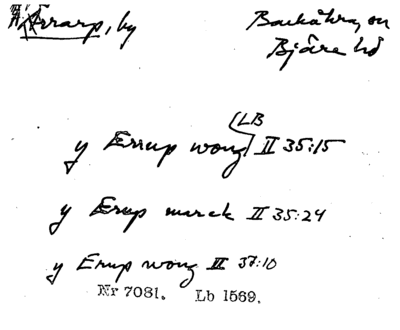 Ärrarp, by
Backåkra, sn
Bjäre hd
LB
y Errup wong II 35:15
y Erup marck II 35:24
y Erup wong II 37:10
Nr 7081. Lb 1569.